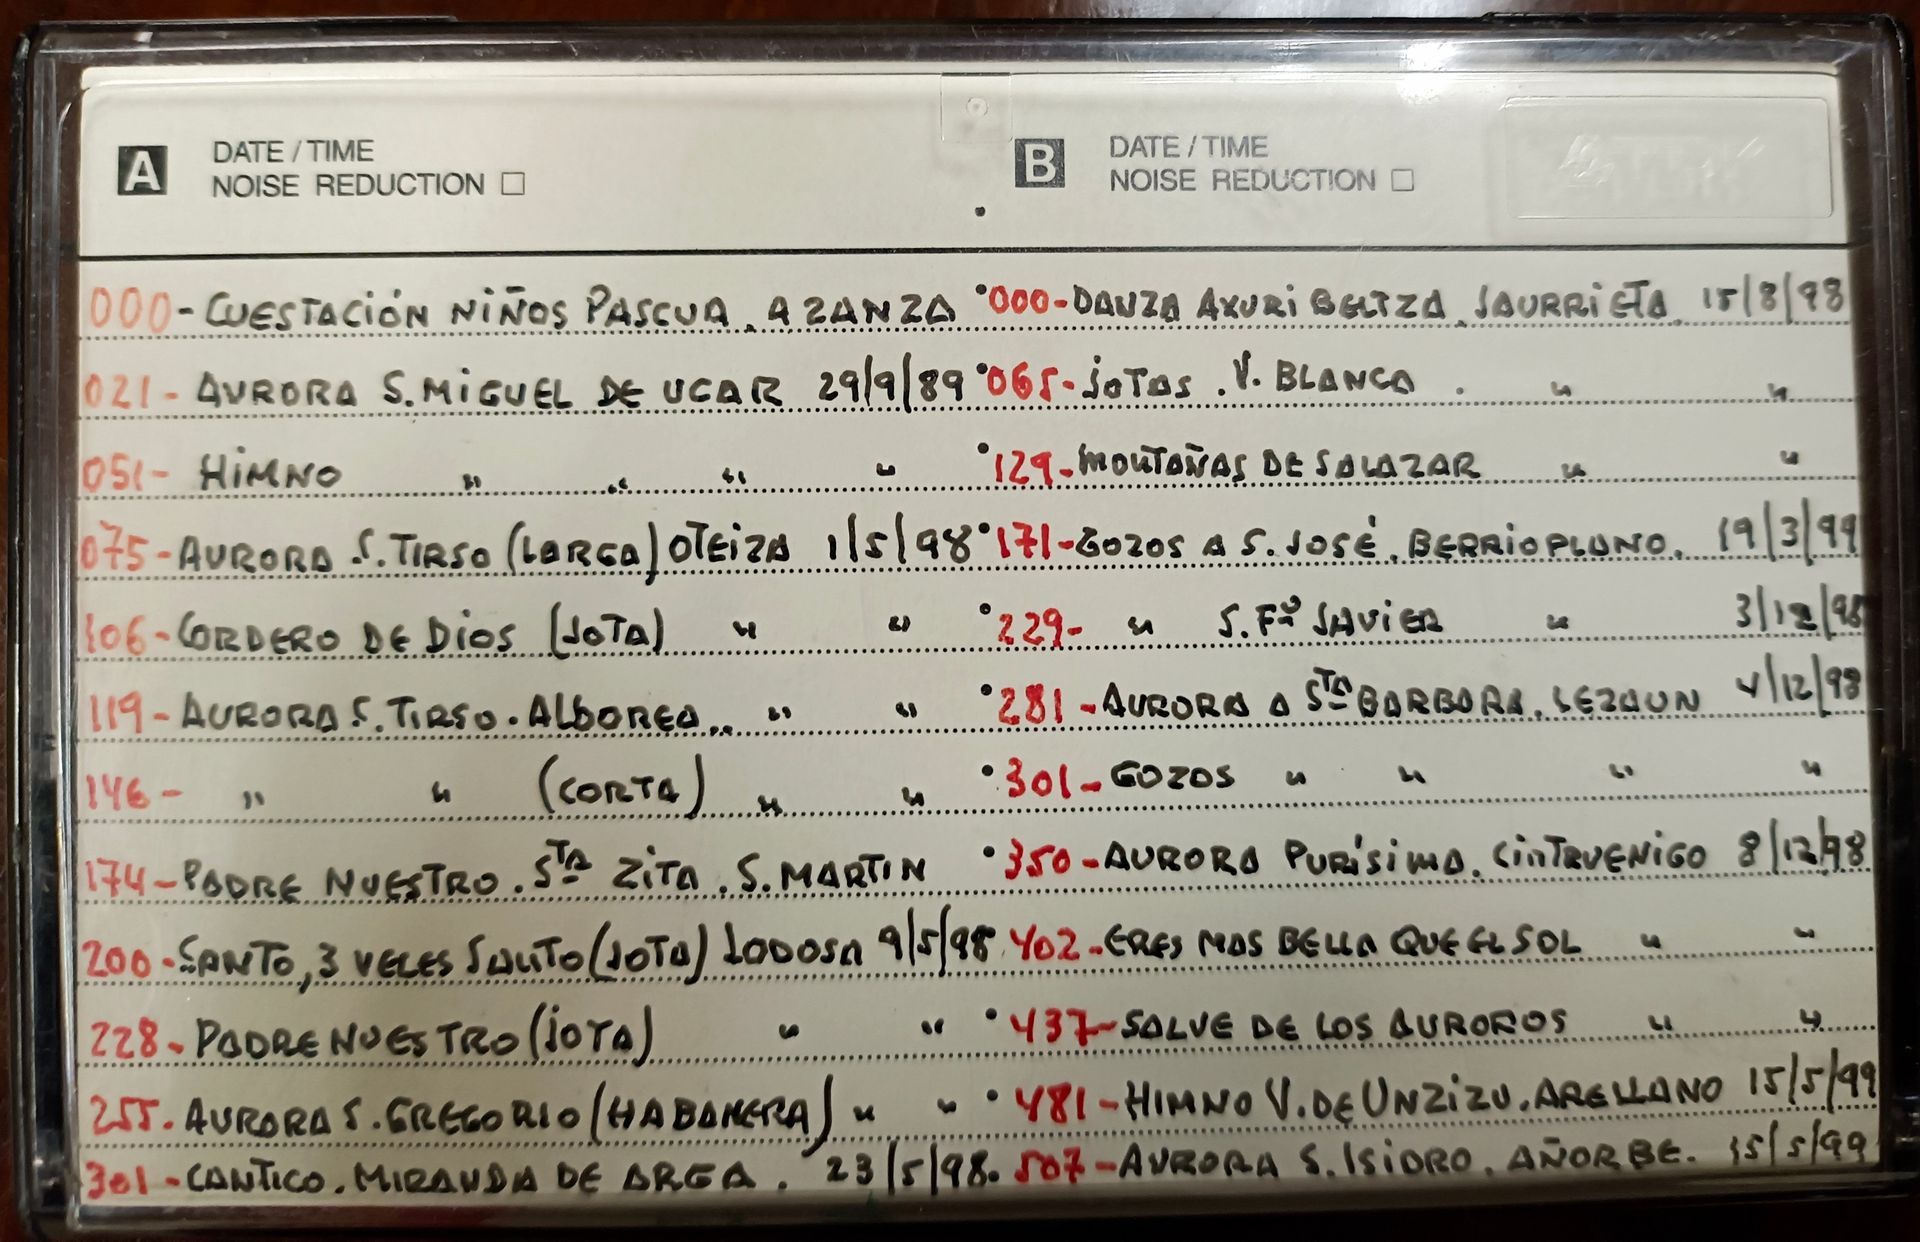 A DATE / TIME
NOISE REDUCTION
000- CUESTACIÓN NIÑOS PASCUA. AZANZA
021- AURORA S. MIGUEL DE UCAR 29/9/89
051- HIMNO " " " "
075- AURORA S. TIRSO (LARGA) OTEIZA 1/5/98
106- CORDERO DE DIOS (JOTA) " "
119- AURORA S. TIRSO. ALBOREA.. " "
146- " " (CORTA) " "
174- PADRE NUESTRO. STA ZITA. S. MARTIN
200- SANTO, 3 VECES SANTO (JOTA) LODOSA 9/5/98
228- PADRE NUESTRO (JOTA) " "
255. AURORA S. GREGORIO (HABANERA) " "
301- CANTICO. MIRANDA DE ARGA. 23/5/98.
B DATE / TIME
NOISE REDUCTION
000- DANZA AXURI BELTZA. JAURRIETA. 15/8/98
065- JOTAS. V. BLANCA. " "
129- MONTAÑAS DE SALAZAR " "
171- GOZOS A S. JOSÉ. BERRIOPLANO. 19/3/99
229- " S. Fº JAVIER " 3/12/98
281- AURORA A STA BARBARA. LEZAUN 4/12/98
301- GOZOS " " " "
350- AURORA PURÍSIMA. CINTRUENIGO 8/12/98
402- ERES MAS BELLA QUE EL SOL " "
437- SALVE DE LOS AUROROS " "
481- HIMNO V. DE UNZIZU. ARELLANO 15/5/99
507- AURORA S. ISIDRO. AÑORBE. 15/5/99